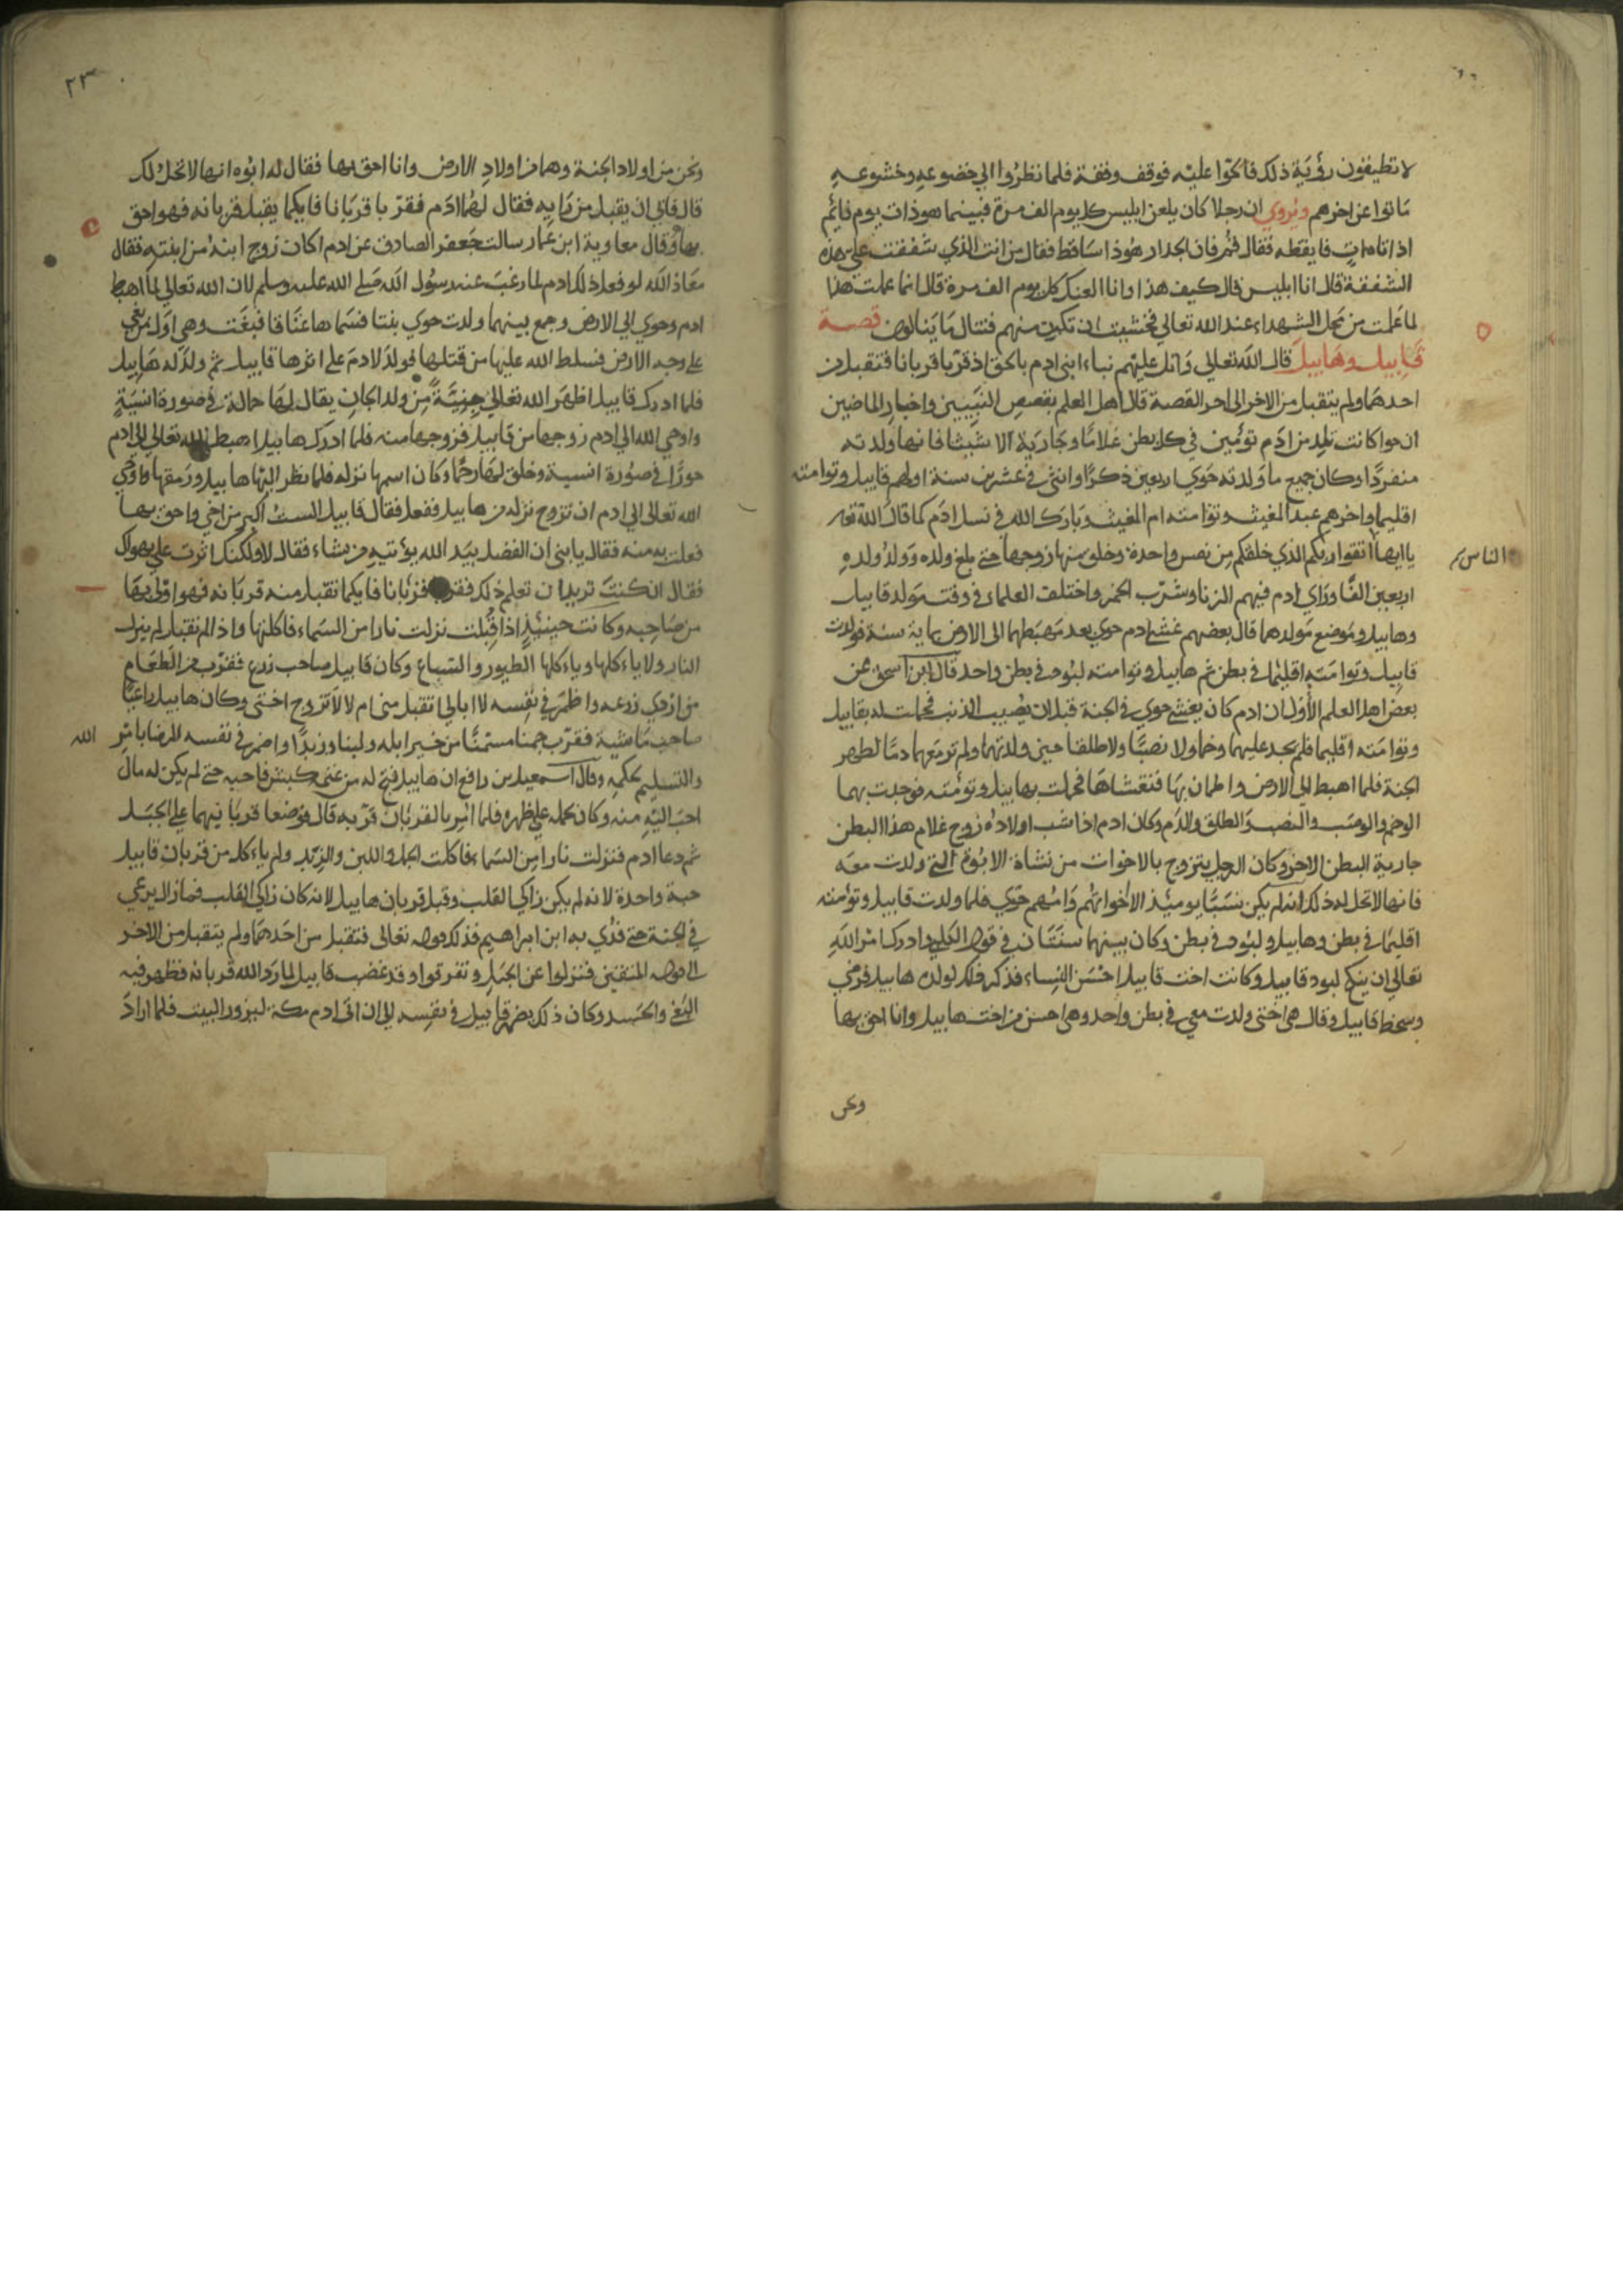 لا تطيقون رؤية ذلك فالحوا عليه فوقف وقفة فلما نظروا الي خضوعه وخشوعه
ماتوا عن اخرهم ويروي ان رجلا كان يلعن ابليس كل يوم الف مرة فبينما هو ذات يوم نائم
اذ اتاه ات فايقظه فقال قم فان الجدار هوذا ساقط فقال من انت الذي شفقت علي هذه
الشفقة قال انا ابليس قال كيف هذا وانا العنك كل يوم الف مرة قال انما عملت هذا
لما علمت من محل الشهداء عند الله تعالي فخشيت ان تكون منهم فتنال ما ينالون قصة
قابيل وهابيل قال الله تعالي واتل عليهم نباء ابني ادم بالحق اذ قربا قربانا فتقبل من
احدهما ولم يتقبل من الاخر الى اخر القصة قال اهل العلم بقصص النبيين واخبار الماضين
ان حوا كانت تلد من ادم توئمين في كل بطن غلاما وجارية الا شيثا فانها ولدته
منفردا وكان جميع ما ولدته حوي اربعين ذكرا وانثى في عشرين سنة اولهم قابيل وتوامته
اقليما واخرهم عبد المغيث وتوامته ام المغيث وبارك الله في نسل ادم كما قال الله تعه
يا ايها اتقوا ربكم الذي خلقكم من نفس واحدة وخلق منها زوجها حتى بلغ ولده وولد ولده
الناس
اربعين الفا وراي ادم فيهم الزنا وشرب الخمر واختلف العلماء في وقت مولد قابيل
وهابيل وموضع مولدهما قال بعضهم غشي ادم حوي بعد مهبطهما الى الارض بماية سنة فولدت
قابيل وتوامته اقليما في بطن ثم هابيل وتوامته لبود في بطن واحد قال ابن اسحق عن
بعض اهل العلم الأول ان ادم كان يغشي حوي في الجنة قبل ان يصيب الذنب فحملت له بقابيل
وتوامته اقليما فلم تجد عليهما وخما ولا نصبا ولا طلقا حين ولدتهما ولم تر معهما دما لطهر
الجنة فلما اهبط الي الارض واطمان بها فتغشاها فحملت بهابيل وتوئمته فوجدت بهما
الوخم والوصب والنصب والطلق والدم وكان ادم اذا شب اولاده زوج غلام هذا البطن
جارية البطن الاخر وكان الرجل يتزوج بالاخوات من نشاة الابوة التي ولدت معه
فانها لا تحل له ذلك انه لم يكن نسبا يومئذ الا اخواتهم وامهم حوي فلما ولدت قابيل وتوئمته
اقليما في بطن وهابيل ولبود في بطن وكان بينهما سنتان في قول الكلبي وادركا امر الله
تعالي ان ينكح لبود قابيل وكانت اخت قابيل احسن النساء فذكر ذلك لولده هابيل فرضي
وسخط قابيل وقال هي اختي ولدت معي في بطن واحد وهي احسن من اخت هابيل وانا احق بها
ونحن
٢٣
ونحن من اولاد الجنة وهما من اولاد الارض وانا احق بها فقال له ابوه انها لا تحل لك
قال فابي ان يقبل من رايه فقال لهما ادم فقربا قربانا فايكما يقبل قربانه فهو احق
بها وقال معاوية ابن عمار سالت جعفر الصادق عن ادم اكان زوج ابنه من ابنته فقال
معاذ الله لو فعل ذلك ادم لما رغب عنه رسول الله صلي الله عليه وسلم لان الله تعالي لما اهبط
ادم وحوي الي الارض وجمع بينهما ولدت حوي بنتا فسماها عناقا فبغت وهي اول من بغي
علي وجه الارض فسلط الله عليها من قتلها فولد لادم علي اثرها قابيل ثم ولد له هابيل
فلما ادرك قابيل اظهر الله تعالي جنية من ولد الجان يقال لها حمالة في صورة انسية
واوحي الله الي ادم زوجها من قابيل فزوجها منه فلما ادرك هابيل اهبط الله تعالي الي ادم
حورا في صورة انسية وخلق لها رحما وكان اسمها نزله فلما نظر اليها هابيل ورمقها فاوحي
الله تعالى الي ادم ان تزوج نزله من هابيل ففعل فقال قابيل الست اكبر من اخي واحق بها
فعلت به منه فقال يا بني ان الفضل بيد الله يؤتيه من يشاء فقال لا ولكنك اثرت علي بهواك
فقال ان كنت تريد ان تعلم ذلك فقربا قربانا فايكما تقبل منه قربانه فهو اولي بها
من صاحبه وكانت حينئذ اذا قبلت نزلت نارا من السماء فاكلتها واذا لم تقبل لم ينزل
النار ولا ياءكلها وياءكلها الطيور والسباع وكان قابيل صاحب زرع فقرب من الطعام
من اردي زرعه واظمر في نفسه لا ابالي اتقبل مني ام لا لا تزوج اختي وكان هابيل راعيا
صاحب ماشية فقرب جملا مسمنا من خير ابله ولبنا وزبدا واضمر في نفسه الرضا بامر
الله
والتسليم لحكمه وقال اسمعيل بن رافع ان هابيل نتج له من غنمه كبش فاحبه حتى لم يكن له مال
احب اليه منه وكان يحمله علي ظهره فلما امر بالقربان قربه قال فوضعا قربانيهما علي الجبل
ثم دعا ادم فنزلت نارا من السماء فاكلت الجمل واللبن والزبد ولم ياءكل من قربان قابيل
حبة واحدة لانه لم يكن زاكي القلب وقبل قربان هابيل لانه كان زاكي القلب فما زال يرعي
في الجنة حتى فدي به ابن ابراهيم فذلك قوله تعالى فتقبل من احدهما ولم يتقبل من الاخر
الى قوله المتقين فنزلوا عن الجبل وتفرقوا وقد غضب قابيل لما رد الله قربانه فظهر فيه
البغي والحسد وكان ذلك يضمر قابيل في نفسه الي ان اتى ادم مكة ليزور البيت فلما اراد